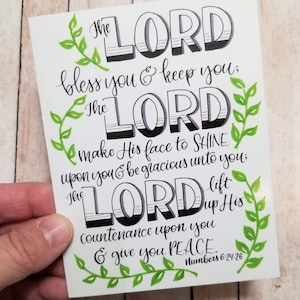 The LORD
bless you & keep you;
The LORD
make His face to SHINE
upon you & be gracious unto you;
The LORD lift
up His
countenance upon you
& give you PEACE.
Numbers 6:24-26